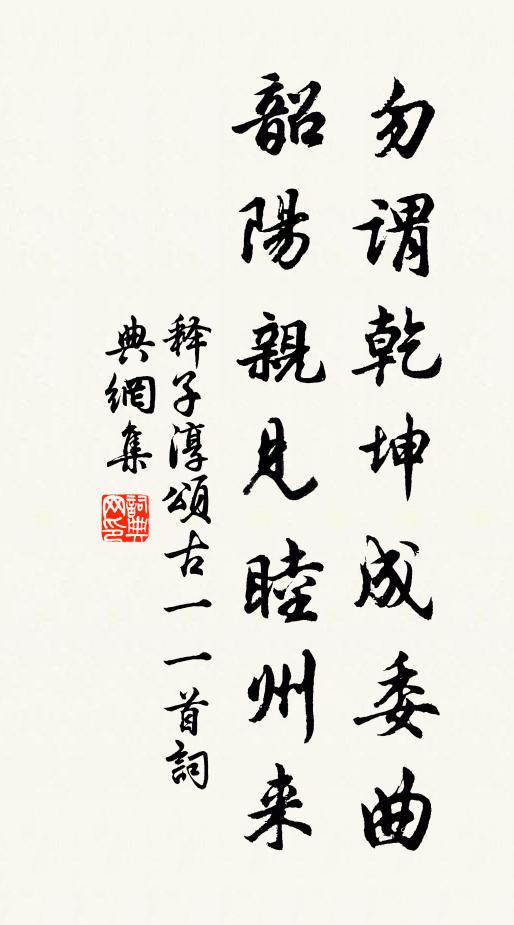 勿谓乾坤成委曲
韶陽親見睦州来
释子淳頌古一一首詞
典網集
詞典網印